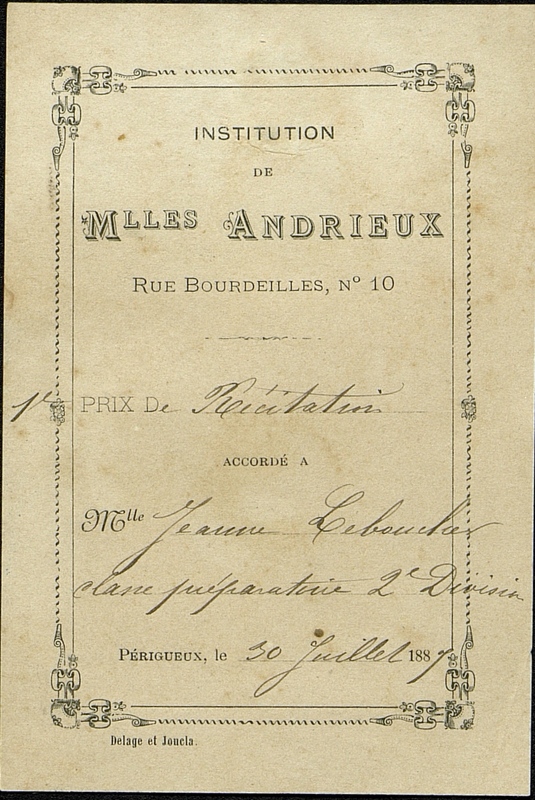 INSTITUTION
DE
Mlles ANDRIEUX
RUE BOURDEILLES, No 10
1er PRIX De Récitation
ACCORDÉ A
Mlle Jeanne Leboucher
classe préparatoire 2e Division
PÉRIGUEUX, le 30 Juillet 1887
Delage et Joucla.